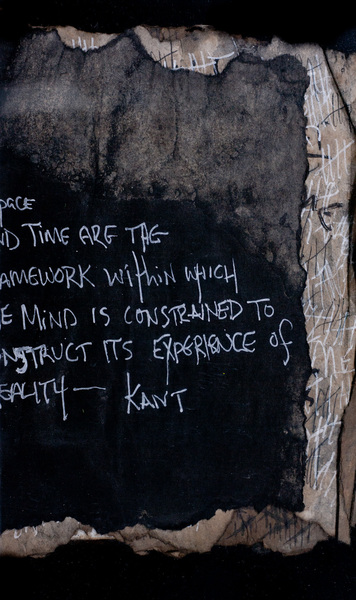 pace
ND TIME ARE THE
AMEWORK WITHIN WHICH
E MIND IS CONSTRAINED TO
ONSTRUCT ITS EXPERIENCE OF
EALITY — KANT